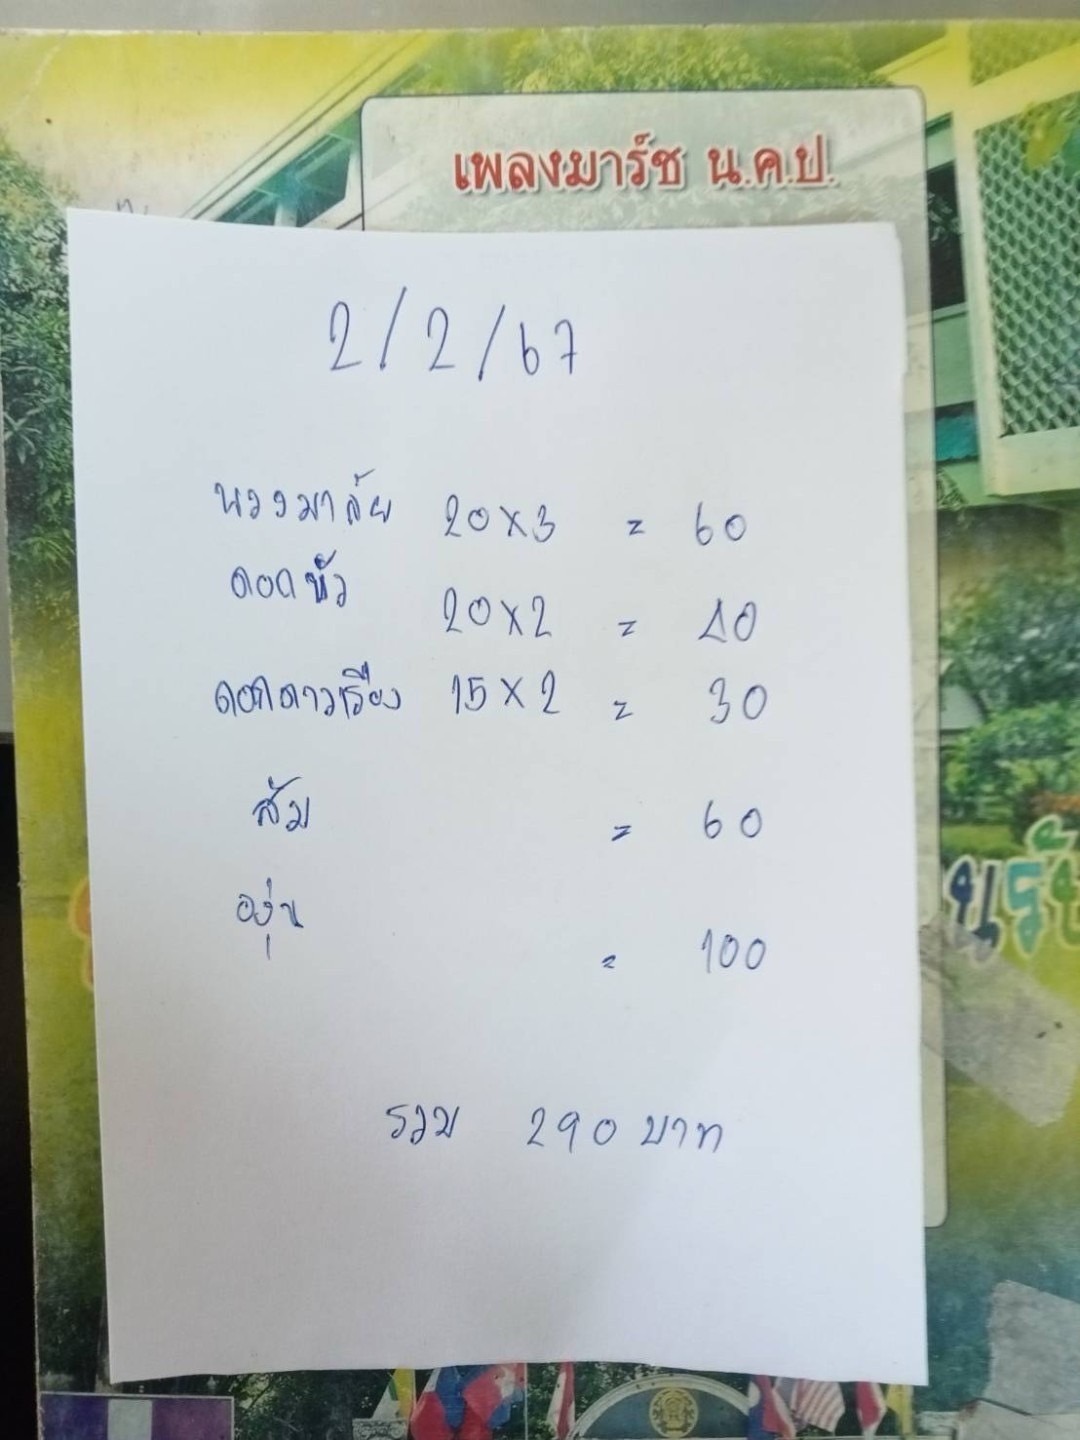 เพลงมาร์ช น.ค.ป.
2/2/67
พวงมาลัย 20×3 = 60
ดอกบัว 20×2 = 40
ดอกดาวเรือง 15×2 = 30
ส้ม = 60
องุ่น = 100
รวม 290 บาท